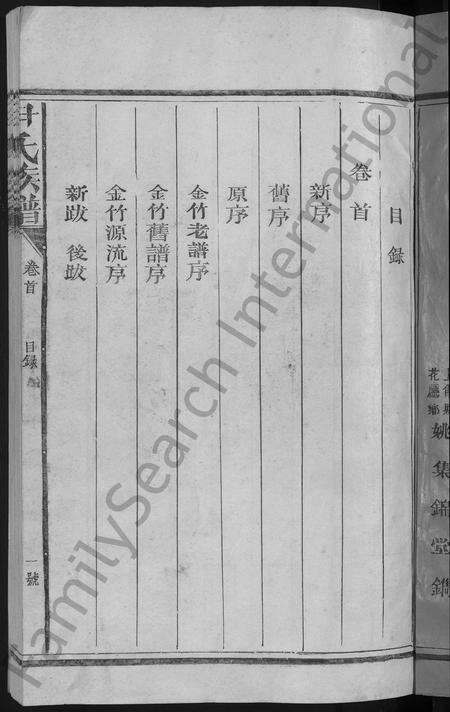 目錄
卷首
新序
舊序
原序
金竹老譜序
金竹舊譜序
金竹源流序
新跋 後跋
氏族譜
卷首
目錄
一號
姚集錦堂鐫
FamilySearch International